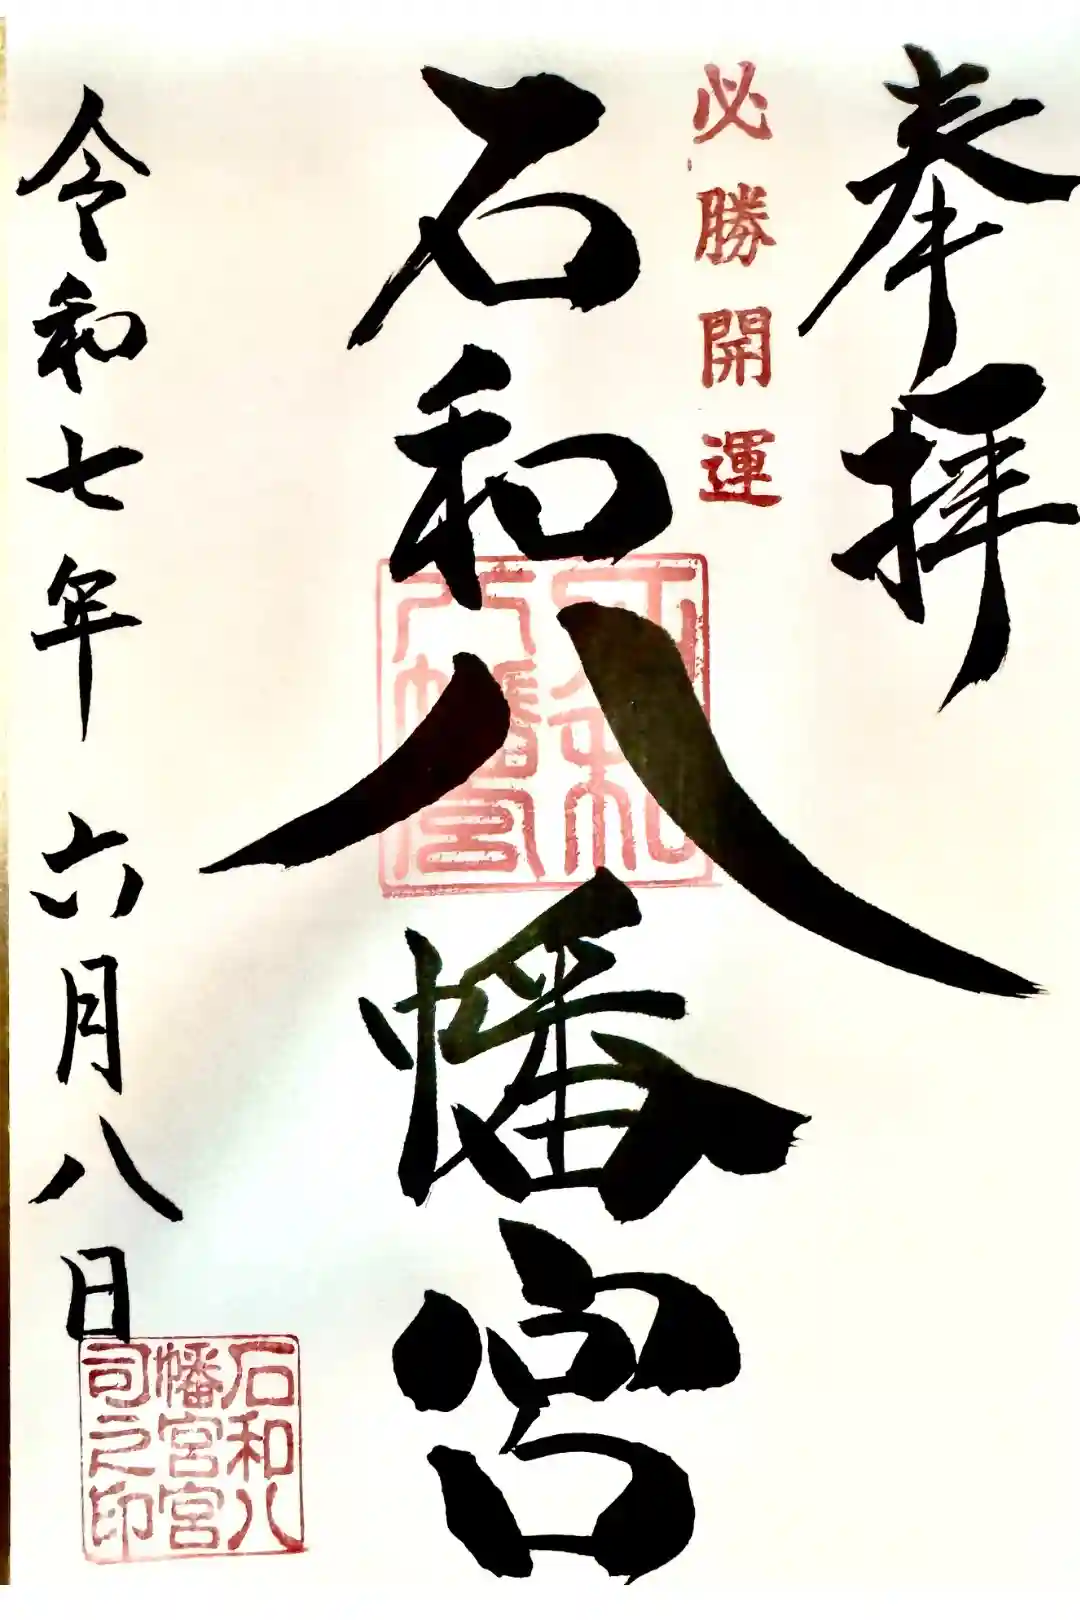 奉拝
必勝開運
石和八幡宮
石和八幡宮
令和七年 六月八日
石和八
幡宮宮
司之印